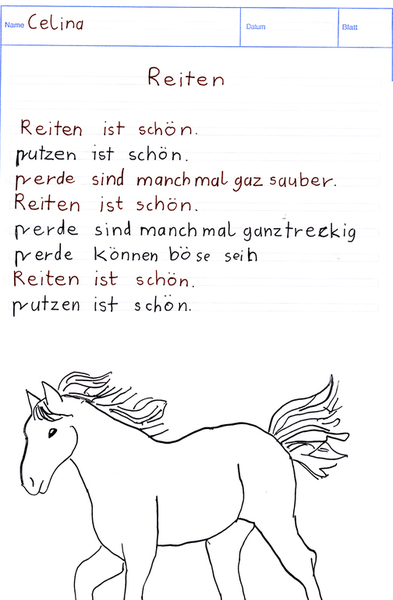 Name Celina
Datum
Blatt
Reiten
Reiten ist schön.
putzen ist schön.
pverde sind manchmal gaz sauber.
Reiten ist schön.
pverde sind manchmal ganz treckig
pverde können böse sein
Reiten ist schön.
putzen ist schön.